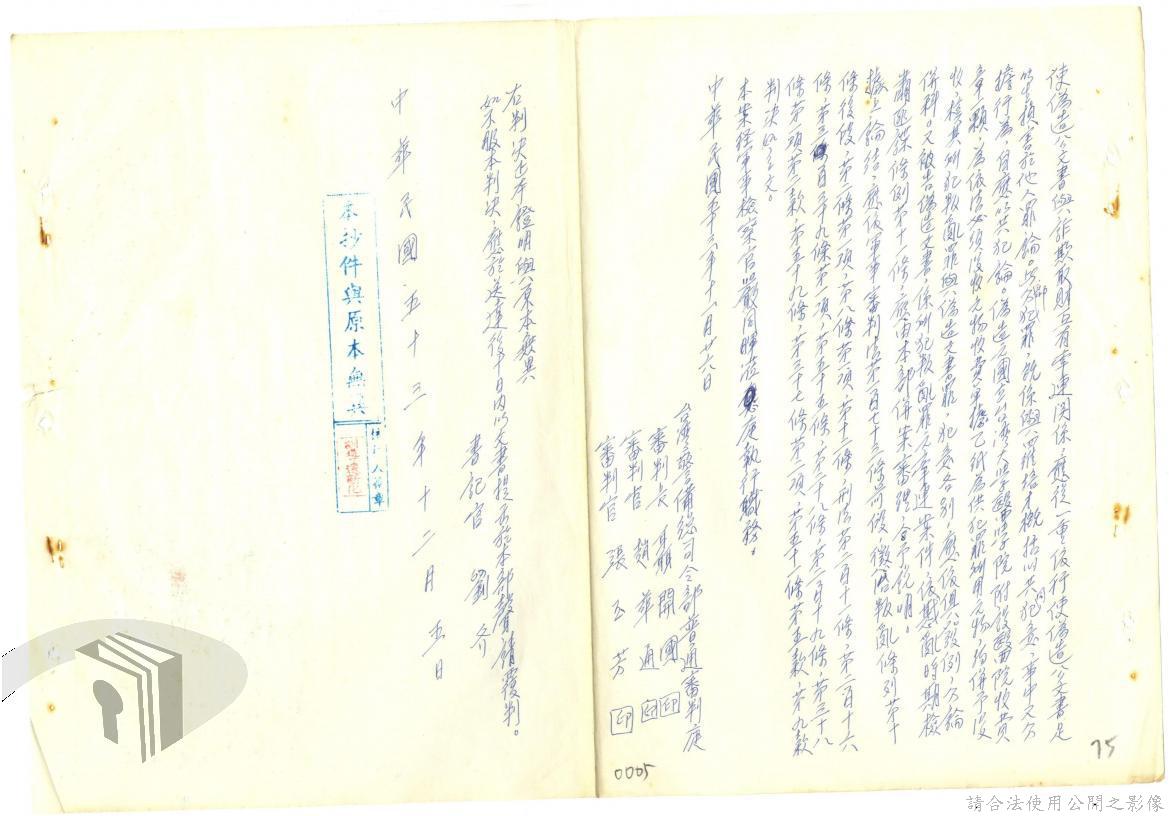 使偽造公文書與詐欺取財互有牽連關係，應從一重依行使偽造公文書足
以生損害於他人罪論。共犯罪，既係與羅培才概括以共犯意，事中又分
擔行為，自應以共犯論。偽造之國立台灣大學醫學院附設醫院收費
章一顆，為依法必須沒收之物收費單據乙紙為供犯罪所用之物，均併予沒
收，核其所犯叛亂罪與偽造文書罪，犯意各別，應依俱發例，分論
併科。又被告偽造文書，係所犯叛亂罪之牽連案件，依戡亂時期檢
肅匪諜條例第十一條，應由本部併案審理，合予說明。
據上論結，應依軍事審判法第一百七十三條前段，懲治叛亂條例第十
條後段、第二條第一項、第八條第一項、第十二條，刑法第二百十一條、第二百十六
條、第三百三十九條第一項、第五十五條、第二十八條、第二百十九條、第三十八
條第一項第二款、第五十九條、第三十七條第二項、第五十一條第五款、第九款
判決如主文。
本案經軍事檢察官嚴同暉蒞庭執行職務。
中華民國五十三年十一月廿六日
台灣警備總司令部普通審判庭
審判長 聶開國 印
審判官 趙華通 印
審判官 張玉芳 印
75
0005
右判決正本證明與原本無異
如不服本判決，應於送達後十日內以文書提出於本部聲請覆判。
書記官 劉介
中華民國五十三年十二月 五日
本抄件與原本無異
請合法使用公開之影像